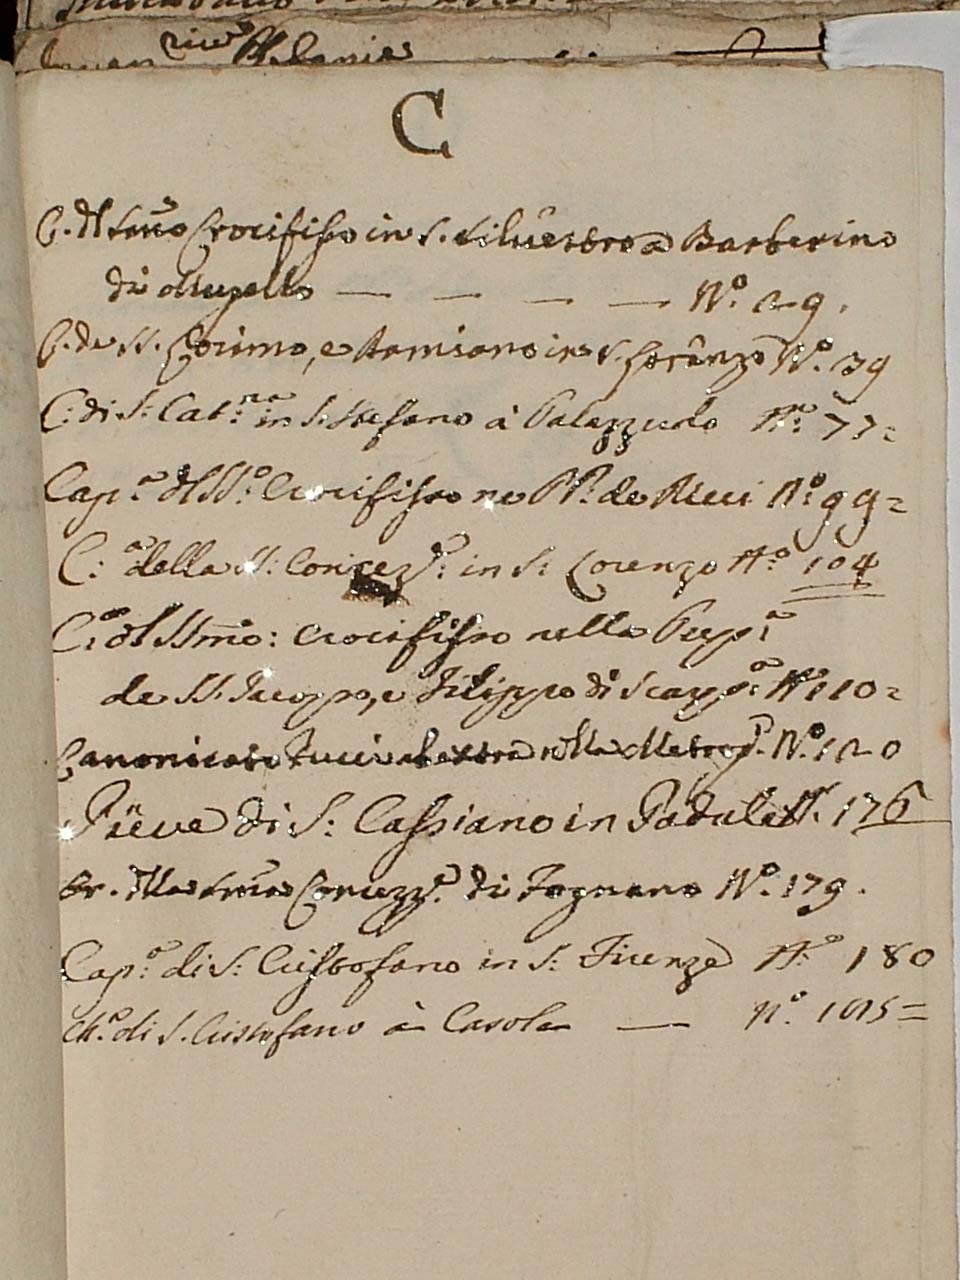 C
C. dl SSmo Crocifisso in S. Silvestro a Barberino
di Mugello — — — — No. 29.
C. de SS. Cosimo, e Damiano in S. Lorenzo No. 39
C: di S: Catna: in S. Stefano à Palazzuolo No: 77=
Capa: dl SSo: Crocifisso ne PP: de Ricci No: 99=
Ca: della SS: Concezze: in S: Lorenzo No: 104
Ca: dl SSmo: Crocifisso nella Prepra
de SS. Jacopo, e Filippo di Scarpa: No: 110=
Canonicato nella Metrop. No. 120
Pieve di S: Cassiano in Padule No. 176
Concezze. di Fognano No. 179.
Capa: di S: Cristofano in S: Firenze No: 180
di S. Cristofano à Casola — No.